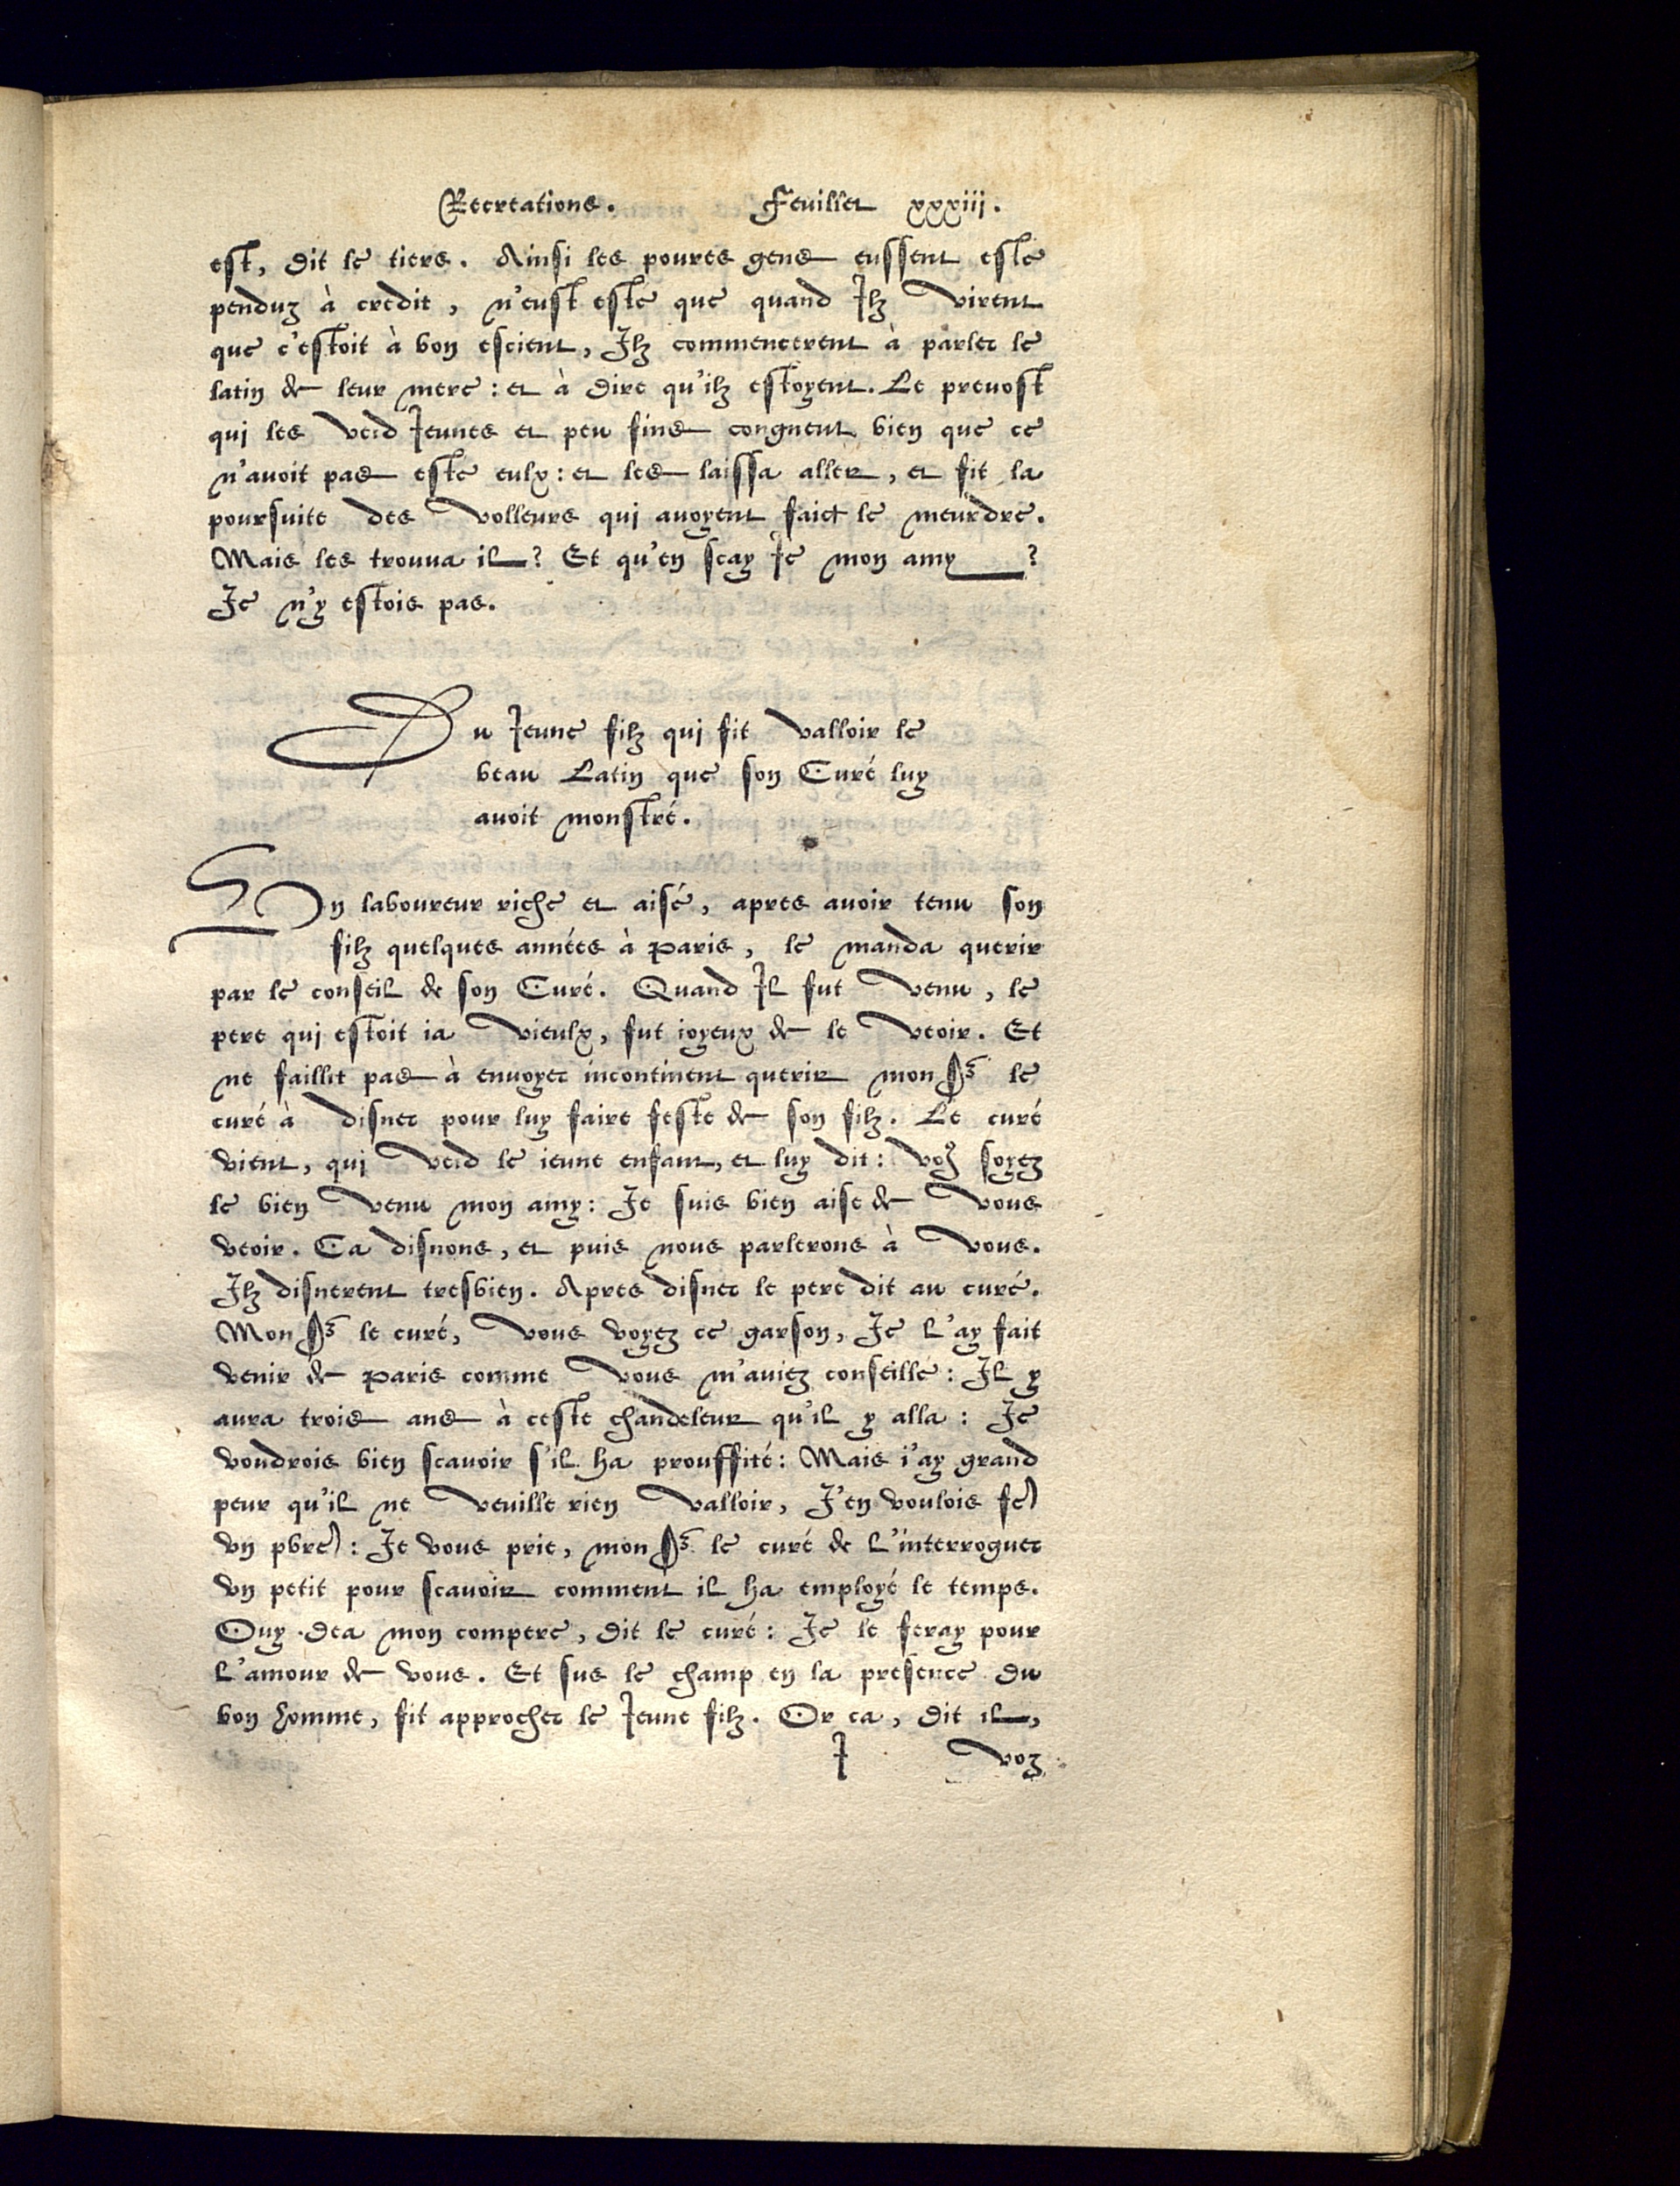 Recreations. Feuillet xxxiij.
est, dit le tiers. Ainsi les poures gens eussent esté
penduz à credit, n'eust esté que quand Ilz virent
que c'estoit à bon escient, Ilz commencerent à parler le
latin de leur mere: et à dire qu'ilz estoyent. Le preuost
qui les veid Ieunes et peu fins congneut bien que ce
n'auoit pas esté eulx: et les laissa aller, et fit la
poursuite des volleurs qui auoyent faict le meurdre.
Mais les trouua il? Et qu'en scay Ie mon amy?
Ie n'y estois pas.
Du Ieune filz qui fit valloir le
beau Latin que son Curé luy
auoit monstré.
Vn laboureur riche et aisé, apres auoir tenu son
filz quelques années à Paris, le manda querir
par le conseil de son Curé. Quand Il fut venu, le
pere qui estoit ia vieulx, fut ioyeux de le veoir. Et
ne faillit pas à enuoyer incontinent querir monsr le
curé à disner pour luy faire feste de son filz. Le curé
vient, qui veid le ieune enfant, et luy dit: voꝰ soyez
le bien venu mon amy: Ie suis bien aise de vous
veoir. Ca disnons, et puis nous parlerons à vous.
Ilz disnerent tresbien. Apres disner le pere dit au curé.
Monsr le curé, vous voyez ce garson, Ie l'ay fait
venir de Paris comme vous m'auiez conseillé: Il y
aura trois ans à ceste chandeleur qu'il y alla: Ie
voudrois bien scauoir s'il ha prouffité: Mais i'ay grand
peur qu'il ne veuille rien valloir, I'en voulois fe
vn pbre: Ie vous prie, monsr le curé de l'interroguer
vn petit pour scauoir comment il ha employé le temps.
Ouy dea mon compere, dit le curé: Ie le feray pour
l'amour de vous. Et sus le champ en la presence du
bon homme, fit approcher le Ieune filz. Or ca, dit il,
I voz